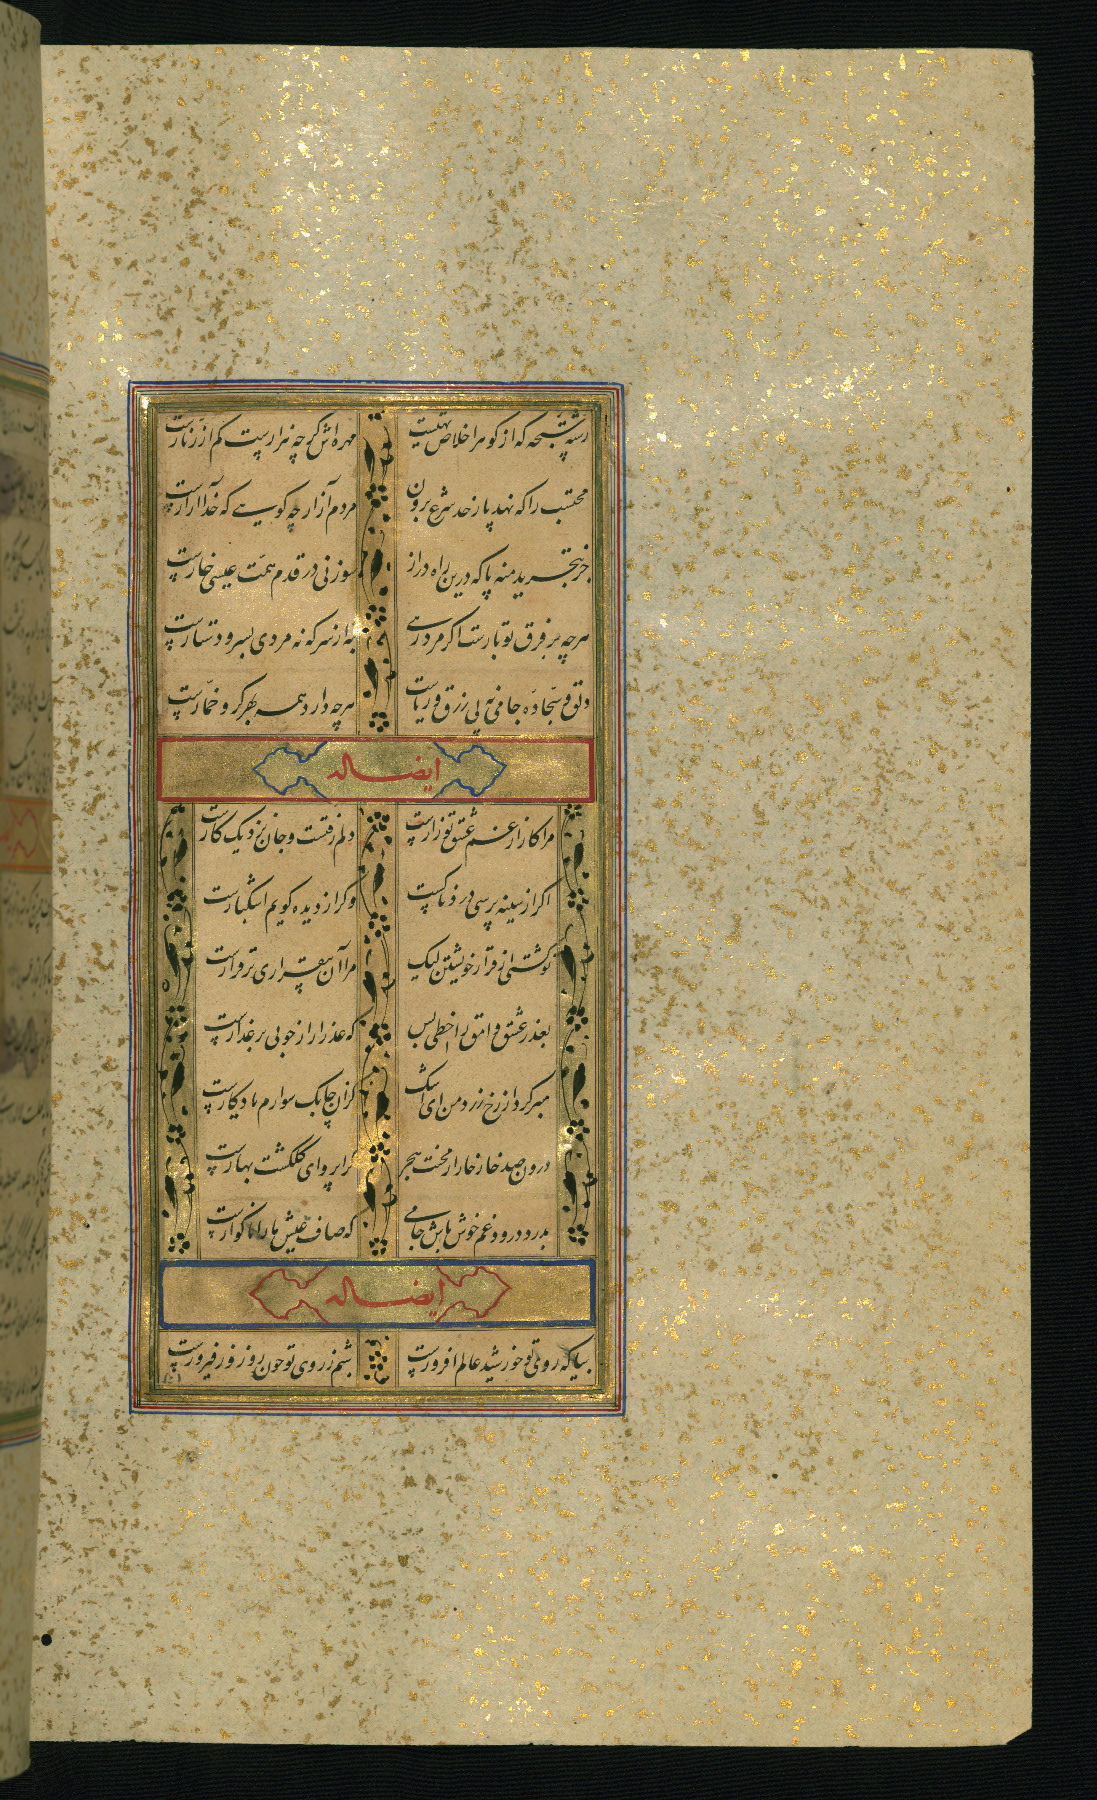 رشته سبحه که از گوهر اخلاص تهیست مهره‌اش گرچه هزارست کم از زنارست
محتسب را که نهد پا ز حد شرع برون مردم آزار چه گویی که خدا آزارست
جز بتجرید منه پا که درین راه دراز سوزنی در قدم همت عیسی خارست
هر چه بر فرق تو بارست اگر مرد رهی نه از سر که نه مردی بسر و دستارست
دلق و سجاده جامی نه پی زرق و ریاست هر چه دارد همه بهر گرو خمارست
ایضا له
مرا کار از غم عشق تو زارست دلم رفتست و جان نزدیک کارست
اگر از سینه پرسی دردناکست و گر از دیده گویم اشکبارست
تو گشتی از قرار خویشتن لیک مرا آن بیقراری برقرارست
بعذر عشق وامق را خطی بس که عذرا را ز خوبی بر عذارست
مبر گرد از رخ زرد من ای اشک کزان چابک سوارم یادگارست
درون صد خار خار از محنت هجر کرا پروای گلگشت بهارست
بدرد درد و غم خوش باش جامی که صاف عیش ما را ناگوارست
ایضا له
بیا که روی تو خورشید عالم افروزست شبم ز روی تو چون روز روز فیروزست